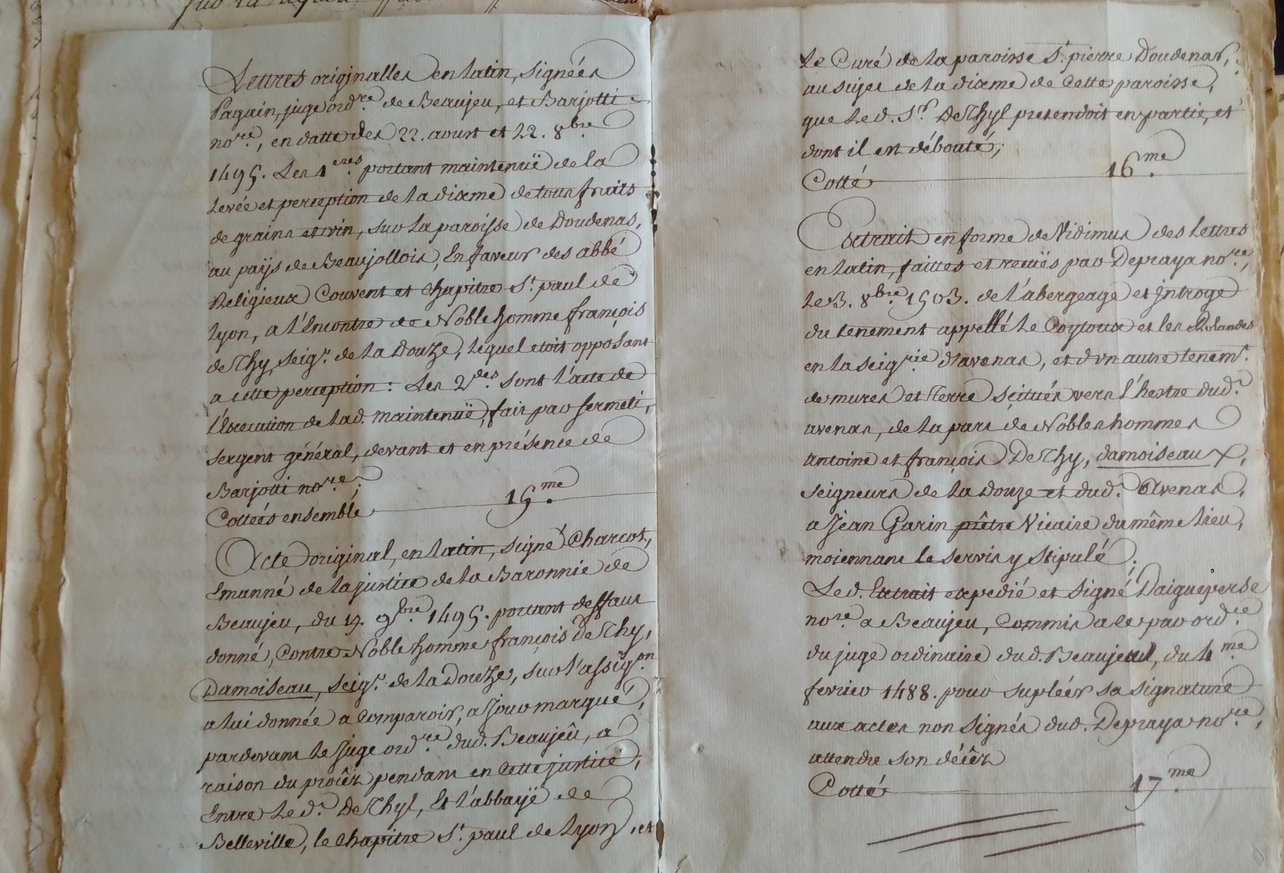 Lettres originalles en latin, signées
Pagain, juge ord.re de Beaujeu, et Barjotti
no.re, en datte des 22. aoust et 22. 8bre
1495. Les 1eres portant maintenuë de la
levée et perception de la dixme de tous fruits
de grains et vin, sur la paroisse de Doudenas,
au païs de Beaujollois, En faveur des abbé
Religieux Couvent et Chapitre St. paul de
Lyon, a l'Encontre de Noble homme françois
de Thy, seig.r de la Douze, lequel etoit opposant
a cette perception: Les 2.des sont l'acte de
l'Execution de lad. maintenuë, fait par fermeli,
sergent général, devant et en présence de
Barjotti no.re;
Cottées ensemble 15.me
Acte original, en latin, signé Charcot,
Emanné de la justice de la Baronnie de
Beaujeu, du 19. 9bre 1495. portant deffaut
donné, Contre Noble homme françois de Thy,
Damoiseau, seig.r de la Douze, sur l'assig.on
a lui donnée a Comparoir, a Jour marqué,
pardevant le Juge ord.re dud. Beaujeû, a
raison du procês pendant en cette justice,
Entre Le d.t De Thyl, Et l'abbaÿe de
Belleville, le Chapitre St. paul de Lyon, et
Le Curé de la paroisse St. pierre Doudenas,
au sujet de la dixme de cette paroisse,
que Le d. S.r De Thyl pretendoit en partie, et
dont il est débouté;
Cotté 16.me
Extrait en forme de Vidimus des Lettres
en latin, faittes et reçuës par Depraya no.re,
Le 3. 8bre 1503. de l'abergeage et Introge
du tenement appellé Le Coytoux et les Rolandes
en la seig.rie d'avenas, et d'un autre tenem.t
de mures et terre scitués vers l'hestre dud.t
avenas, de la part de Nobles hommes
Antoine et françois De Thy, damoiseaux,
seigneurs de la Douze et dud. Avenas,
a Jean Garin prêtre Vicaire du même lieu,
moiennant le servis y stipulé;
Le d. Extrait expedié et signé Daigueperse
no.re a Beaujeu, Commis a ce par ord.ce
du juge ordinaire dud. Beaujeu, du 4.me
fevrier 1488. pour supléér sa signature
aux actes non signés dud. Depraya no.re,
attendu son décêz
Cotté 17.me